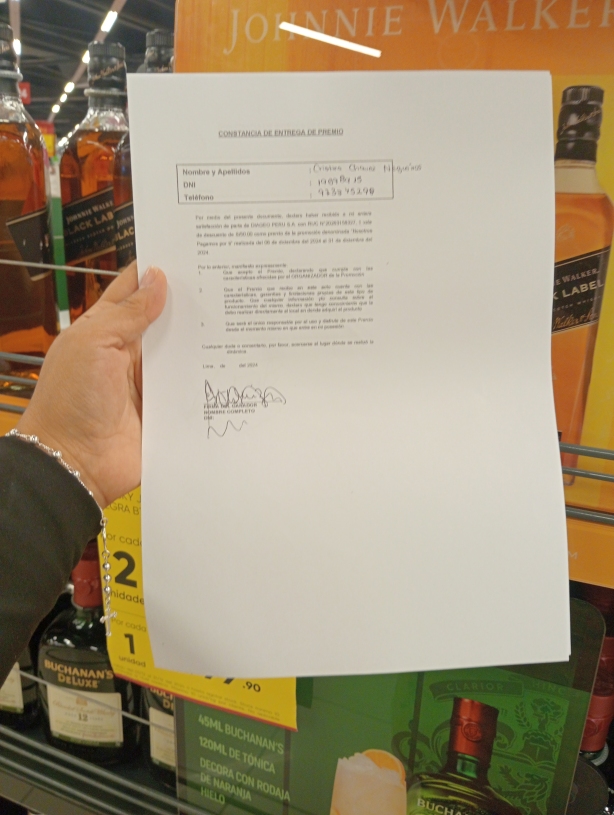 JOHNNIE WALKER
CONSTANCIA DE ENTREGA DE PREMIO
Nombre y Apellidos : Cristian Chavez
DNI :
Teléfono :
Por medio del presente documento, declaro haber recibido a mi entera
satisfacción de parte de DIAGEO PERÚ S.A. con RUC 1 vale
de descuento de como premio de la promoción denominada "Nosotros
Pagamos por ti" realizada del 06 de diciembre del 2024 al 31 de diciembre del
2024
Por lo anterior, manifiesto expresamente:
1. Que acepto el Premio, declarando que cumple con las
características ofrecidas por el ORGANIZADOR de la Promoción.
2. Que el Premio que recibo en este acto cuenta con las
características, garantías y limitaciones propias de este tipo de
producto. Que cualquier información y/o consulta sobre el
funcionamiento del mismo, declaro que tengo conocimiento que la
debo realizar directamente al local en donde adquirí el producto.
3. Que seré el único responsable por el uso y disfrute de este Premio
desde el momento mismo en que entre en mi posesión.
Cualquier duda o comentario, por favor, acercarse al lugar donde se realizó la
dinámica.
Lima, de del 2024
NOMBRE COMPLETO
DNI:
JOHNNIE WALKER
BLACK LABEL
WALKER
LABEL
por cada
2
unidades
Por cada
1
unidad
.90
BUCHANAN'S
DELUXE
12
CLARIOR
45ML BUCHANAN'S
120ML DE TÓNICA
DECORA CON RODAJA
DE NARANJA
HIELO
BUCHANAN